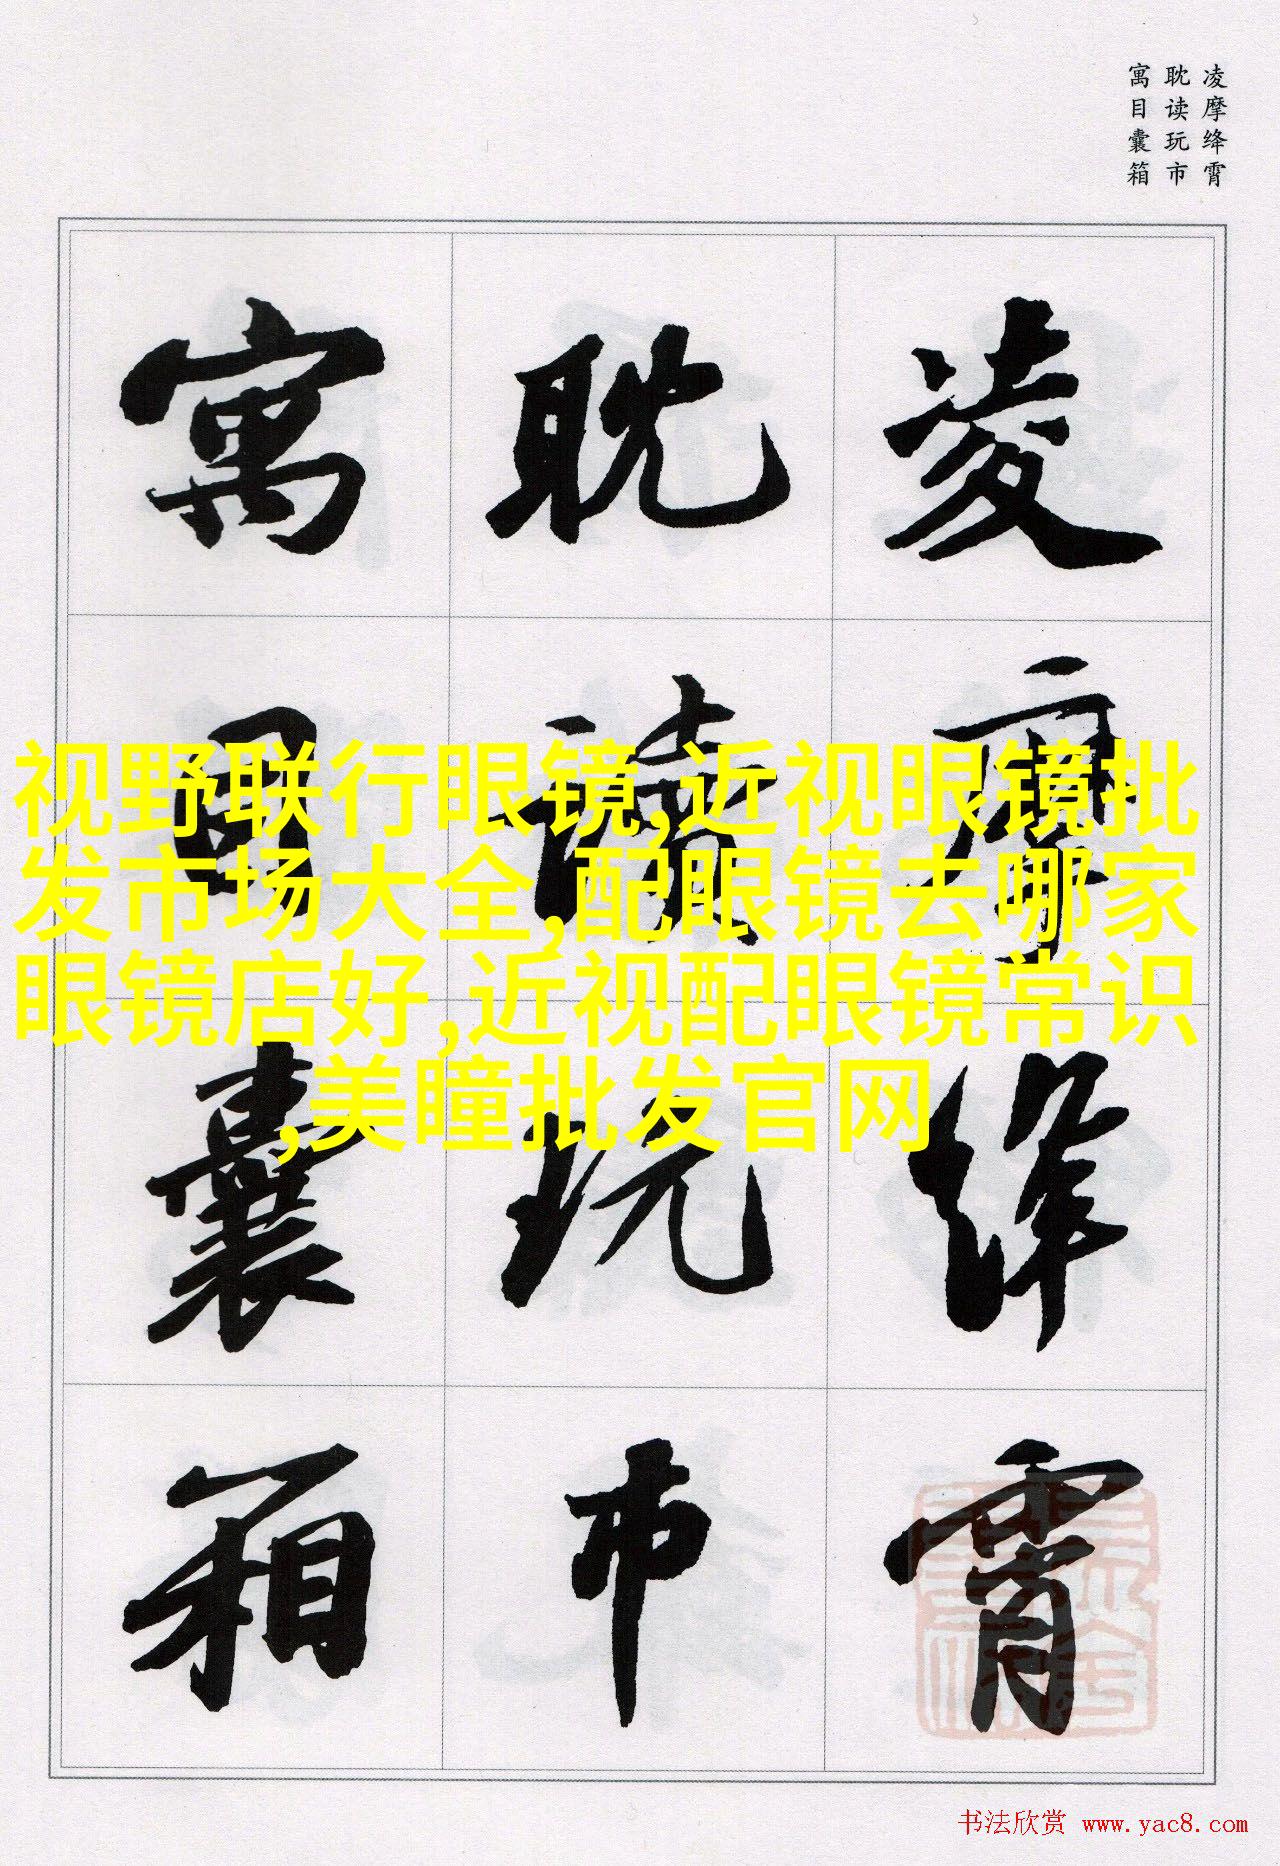 凌摩绛霄
耽读玩市
寓目囊箱
凌摩绛霄
耽读玩市
寓目囊箱
视野联行眼镜,近视眼镜批
发市场大全,配眼镜去哪家
眼镜店好,近视配眼镜常识
,美瞳批发官网
书法欣赏 www.yac8.com